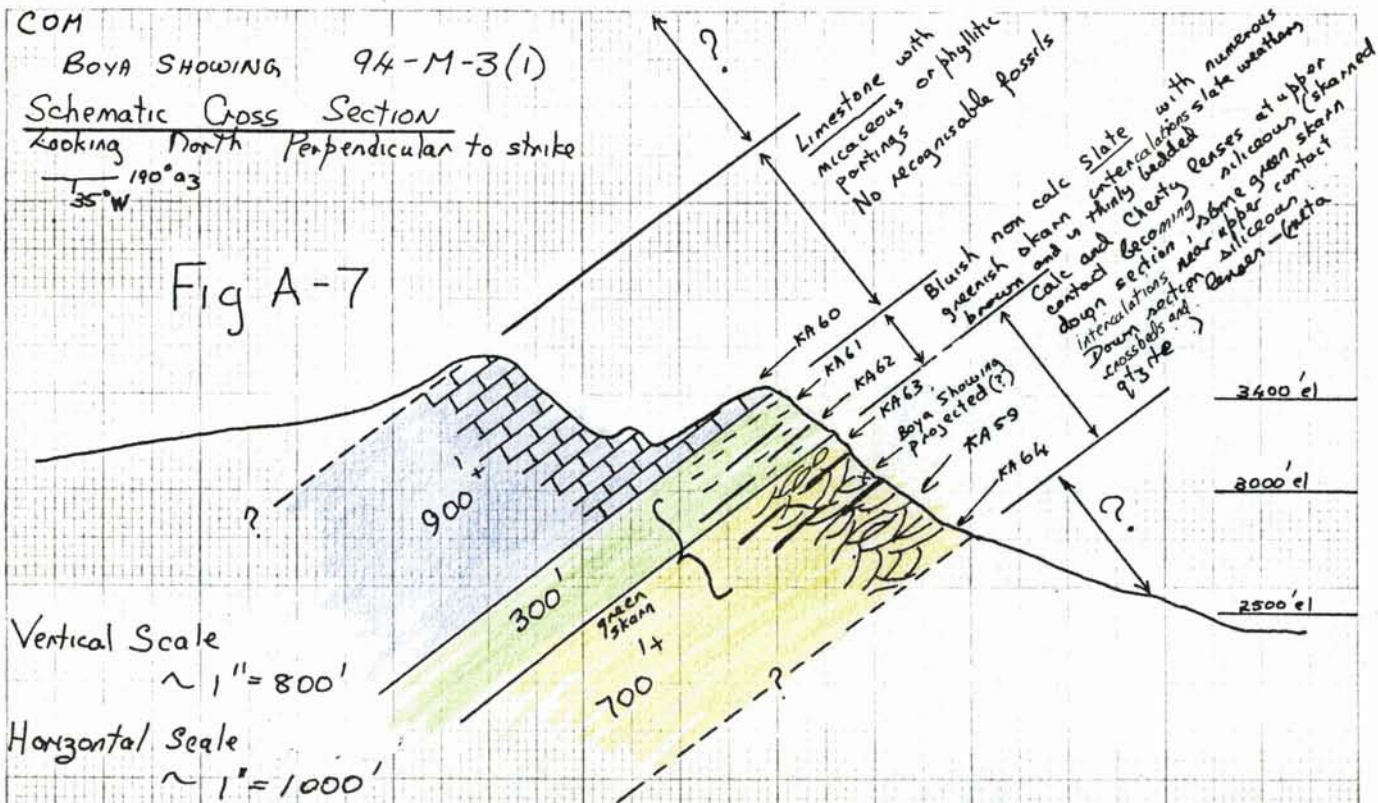 COM
BOYA SHOWING 94-M-3(1)
Schematic Cross Section
Looking North Perpendicular to strike
190° az
35°W
Fig A-7
?
Limestone with
micaceous or phyllitic
partings
No recognisable fossils
Bluish non calc Slate with numerous
greenish skarn intercalations slate weathers
brown and is thinly bedded
Calc and Cherty lenses at upper
contact becoming siliceous (skarned
down section, some green skarn
intercalations near upper contact
Down section siliceous
crossbeds and lenses - (meta
qtzite ?)
KA60
KA61
KA62
KA63
Boya Showing
projected (?)
KA59
KA64
3400' el
3000' el
2500' el
?
?
900'+
300'
green
skarn
700'+
?
Vertical Scale
~ 1" = 800'
Horizontal Scale
~ 1" = 1000'